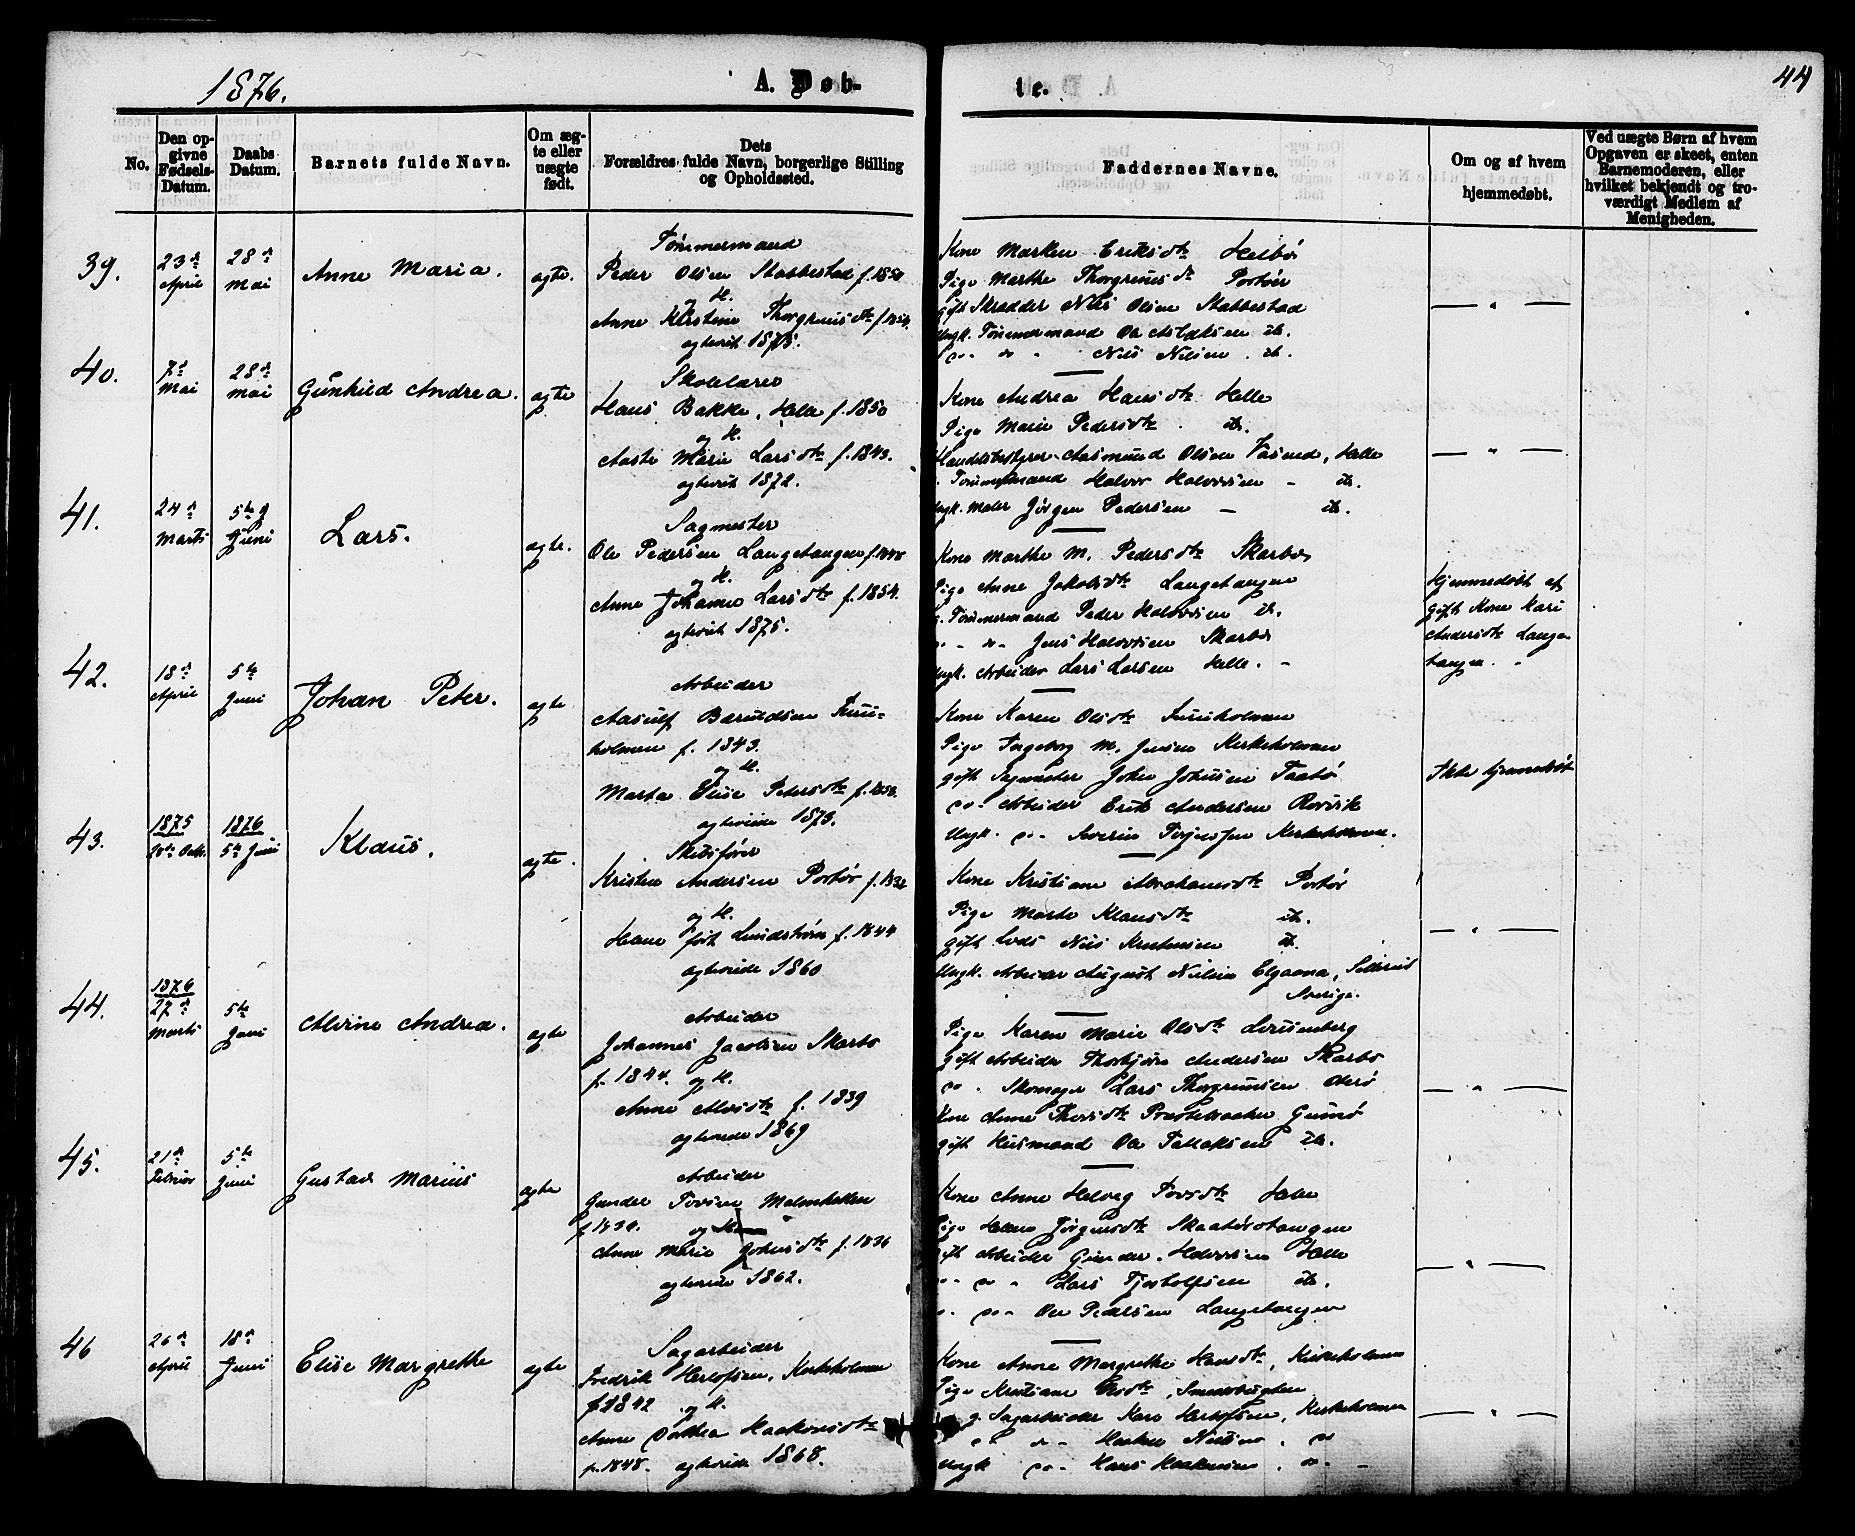 1876.
A. Døb-
te.
44
No.
Den op-
givne
Fødsels-
Datum.
Daabs
Datum.
Barnets fulde Navn.
Om æg-
te eller
uægte
født.
Dets
Forældres fulde Navn, borgerlige Stilling
og Opholdssted.
Faddernes Navne.
Om og af hvem
hjemmedøbt.
Ved uægte Børn af hvem
Opgaven er skeet, enten
Barnemoderen, eller
hvilket bekjendt og tro-
værdigt Medlem af
Menigheden.
39.
23d
April
28d
Mai
Anne Maria.
ægte.
Tømmermand
Peder Olsen Stabbestad f. 1850
og H.
Anne Kirstine Thorgrimsdtr
ægteviet 1875.
Kone Marken Eriksdtr Helbø
Pige Marthe Thorgrimsdtr Portør
gift Skrædder Nils Olsen Stabbestad
Ungk. Tømmermand Ole Aslaksen it.
Nils Nilsen it.
40.
7d
Mai
28d
Mai
Gunhild Andrea.
ægte
Skolelærer
Hans Bakke, Helle f. 1850
og H.
Aaste Marie Larsdtr f. 1843.
ægteviet 1872.
Kone Andrea Hansdtr Helle
Pige Marie Pedersdtr it.
Handelsbestyrer Aasmund Olsen Vasned, Helle
Tømmermand Halvor Halvorsen - it.
Ungk. Maler Jørgen Pedersen - it.
41.
24d
Marts
5te
Juni
Lars.
ægte.
Sagmester
Ole Pedersen Langetangen
og H.
Anne Johanne Larsdtr f. 1854.
ægteviet 1875.
Kone Marthe M. Pedersdtr Skarbo
Pige Anne Jakobsdtr Langetangen
Tømmermand Peder Halvorsen it.
Jens Halvorsen Skarbo
Ungk. Arbeider Lars Larsen Helle.
Hjemmedøbt af
gift Kone Kari
Andersdtr Lange-
tangen.
42.
18d
April
5te
Juni
Johan Peter.
ægte
Arbeider
Aasulf Baruldsen Furu-
holmen f. 1843.
og H.
Marta Elise Petersdtr
ægteviede 1873.
Kone Karen Olsdtr Furuholmen
Pige Ingeborg M. Jensen Kirkeholmen
gift Sagmester John Johnsen Taatø
do. Arbeider Erik Andersen Rørvik
Ungk. do. Severin Terjesen Kirkeholmen.
Ikke hjemmedøbt
43.
1875
1876
5te Juni
Klaus.
ægte.
Skibsfører
Kristen Andersen Portør
og H.
Hane født Lundstrøm f. 1844
ægteviede 1860
Kone Kristiane Abrahamsdtr Portør
Pige Marte Klausdtr it.
gift Lods Nils Kristensen it.
Ungk. Arbeider August Nilsen
Sverige.
44.
1876
27d
Marts
5te
Juni
Alvine Andrea.
ægte
Arbeider
Johannes Jacobsen Skarbo
f. 1844. og H.
Anne Alvsdtr f. 1839
ægteviede 1869
Pige Karen Marie Olsdtr Louisenberg
gift Arbeider Thorbjørn Andersen Skarbo
do. Skomager Lars Thorgrimsen
Kone Anne Thorsdtr Gumø
gift Husmand Ole Tallaksen it.
45.
21d
Februar
5te
Juni
Gustav Marius
ægte
Arbeider
Gunder Tovsen
og H.
Anne Marie Johnsdtr f. 1836
ægteviede 1862.
Kone Anne Helveg Tovsdtr Helle
Pige Helene Jørgensdtr Skaatøtangen
gift Arbeider Gunder Halvorsen Helle
Lars Tjostolfsen it.
Ole Pedersen Langetangen
46
26d
April
18d
Juni
Elise Margrethe
ægte
Sagarbeider
Fredrik Herlofsen, Kirkeholmen
f. 1842 og H.
Anne Dorthea Haakonsdtr
f. 1848. ægteviede 1868.
Kone Anne Margrethe Hansdtr, Kirkeholmen
Pige Kristiane Olsdtr, Smedsbugten
g. Sagarbeider Karl Herlofsen, Kirkeholmen
Haaken Nilsen, do
Ungk do. Hans Haakensen, do.